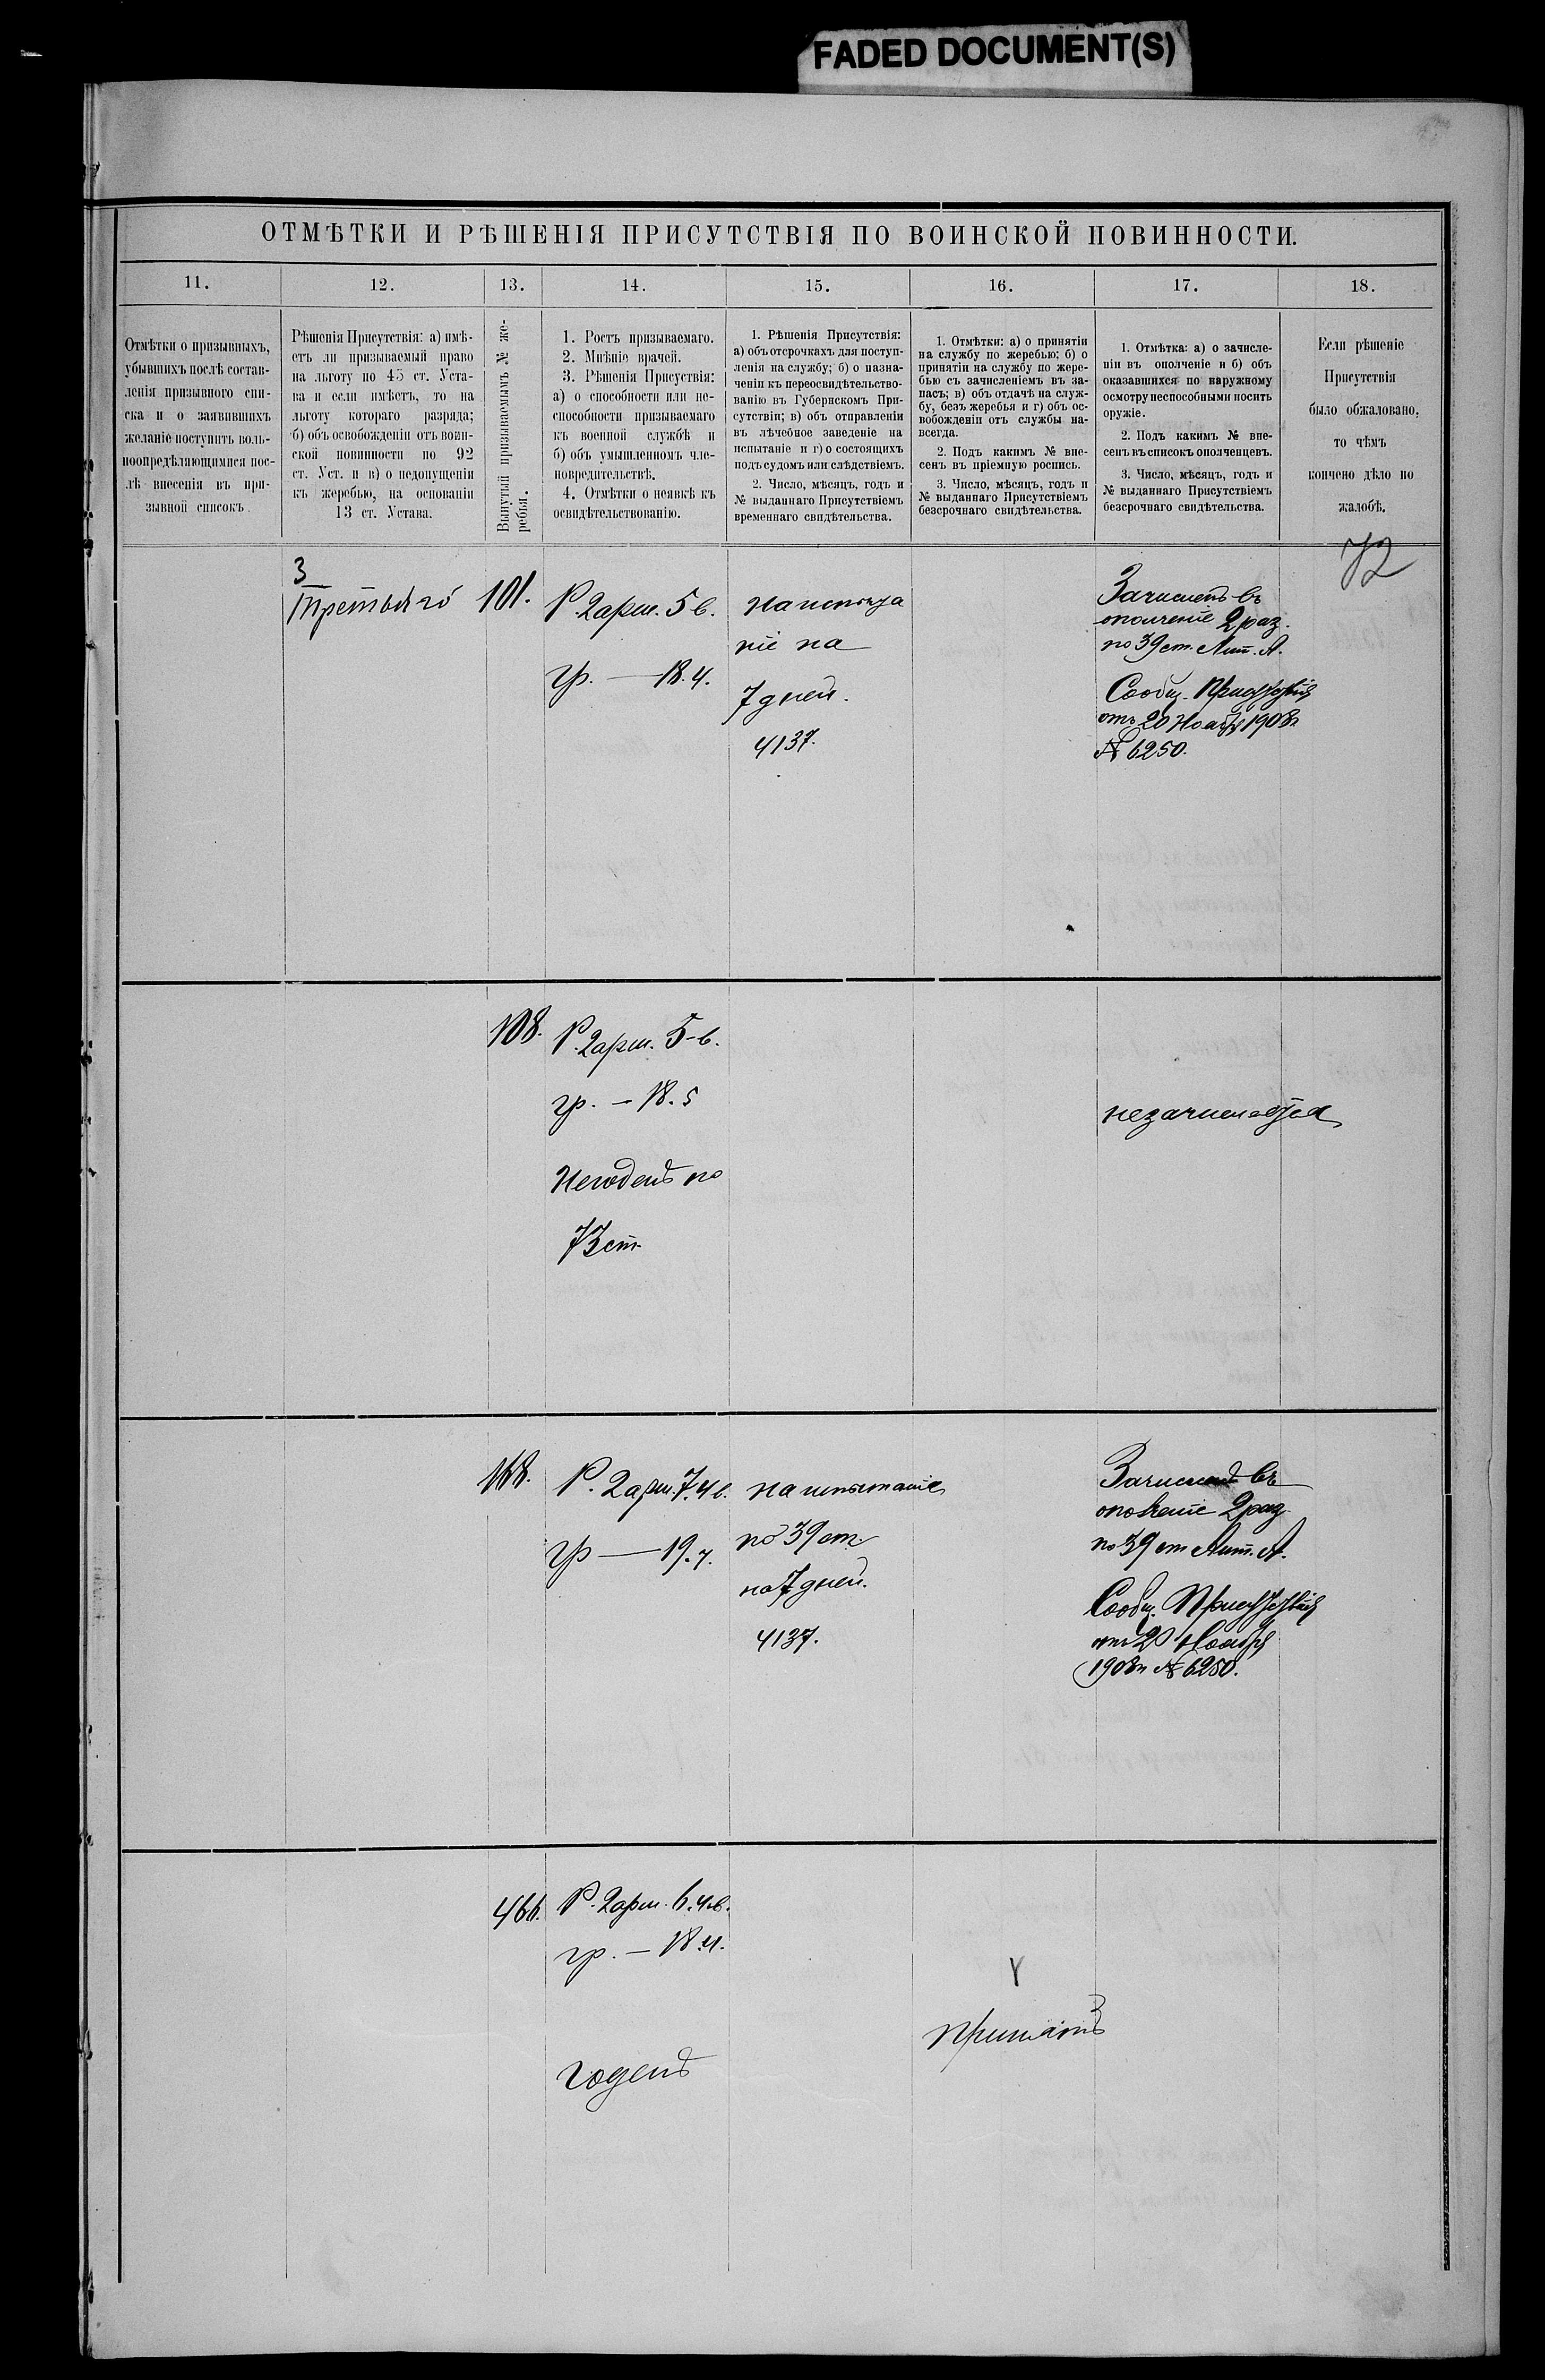 FADED DOCUMENT(S)
ОТМѢТКИ И РѢШЕНІЯ ПРИСУТСТВІЯ ПО ВОИНСКОЙ ПОВИННОСТИ.
11.
12.
13.
14.
15.
16.
17.
18.
Отмѣтки о призывныхъ,
убывшихъ послѣ состав-
ленія призывного спи-
ска и о заявившихъ
желаніе поступить воль-
ноопредѣляющимися пос-
лѣ внесенія въ при-
зывной списокъ.
Рѣшенія Присутствія: а) имѣ-
етъ ли призываемый право
на льготу по 45 ст. Уста-
ва и если имѣетъ, то на
льготу котораго разряда;
б) объ освобожденіи отъ воин-
ской повинности по 92
ст. Уст. и в) о недопущеніи
къ жеребью, на основаніи
13 ст. Устава.
Вынутый призываемымъ № же-
ребья.
1. Ростъ призываемаго.
2. Мнѣніе врачей.
3. Рѣшенія Присуствія:
а) о способности или не-
способности призываемаго
къ военной службѣ и
б) объ умышленномъ чле-
новредительствѣ.
4. Отмѣтки о неявкѣ къ
освидѣтельствованію.
1. Рѣшенія Присутствія:
а) объ отсрочкахъ для поступ-
ленія на службу; б) о назна-
ченіи къ переосвидѣтельство-
ванію въ Губернскомъ При-
сутствіи; в) объ отправленіи
въ лѣчебное заведеніе на
испытаніе и г) о состоящихъ
подъ судомъ или слѣдствіемъ.
2. Число, мѣсяцъ, годъ и
№ выданнаго Присутствіемъ
временнаго свидѣтельства.
1. Отмѣтки: а) о принятіи
на службу по жеребью; б) о
принятіи на службу по жере-
бью съ зачисленіемъ въ за-
пасъ; в) объ отдачѣ на служ-
бу, безъ жеребья и г) объ ос-
вобожденіи отъ службы на-
всегда.
2. Подъ какимъ № вне-
сенъ въ пріемную роспись.
3. Число, мѣсяцъ, годъ и
№ выданнаго Присутствіемъ
безсрочнаго свидѣтельства.
1. Отмѣтка: а) о зачисле-
ніи въ ополченіе и б) объ
оказавшихся по наружному
осмотру неспособными носить
оружіе.
2. Подъ какимъ № вне-
сенъ въ списокъ ополченцевъ.
3. Число, мѣсяцъ, годъ и
№ выданнаго Присутствіемъ
безсрочнаго свидѣтельства.
Если рѣшеніе
Присутствія
было обжаловано,
то чѣмъ
кончено дѣло по
жалобѣ.
72
3
Третьяго
101.
Р. 2 арш. 5 в.
гр. — 18. 4.
на испыта
ніе на
7 дней.
4137.
Зачисленъ въ
ополченіе 2 раз.
по 39 ст. Лит. А.
Сообщ. Присутствія
отъ 20 Ноября 1908 г.
№ 6250.
108.
Р. 2 арш. 5 в.
гр. — 18. 5
Негоденъ по
73 ст.
незачисляется
Р. 2 арш. 7. 4 в.
гр — 19. 4.
на испытаніе
по 39 ст.
на 7 дней.
4137.
Зачисленъ въ
ополченіе 2 раз
по 39 ст Лит. А.
Сообщ. Присутствія
отъ 20 Ноября
1908 г. № 6250.
466.
Р. 2 арш. 6. 4 в.
гр. — 18. 4.
годенъ
принятъ